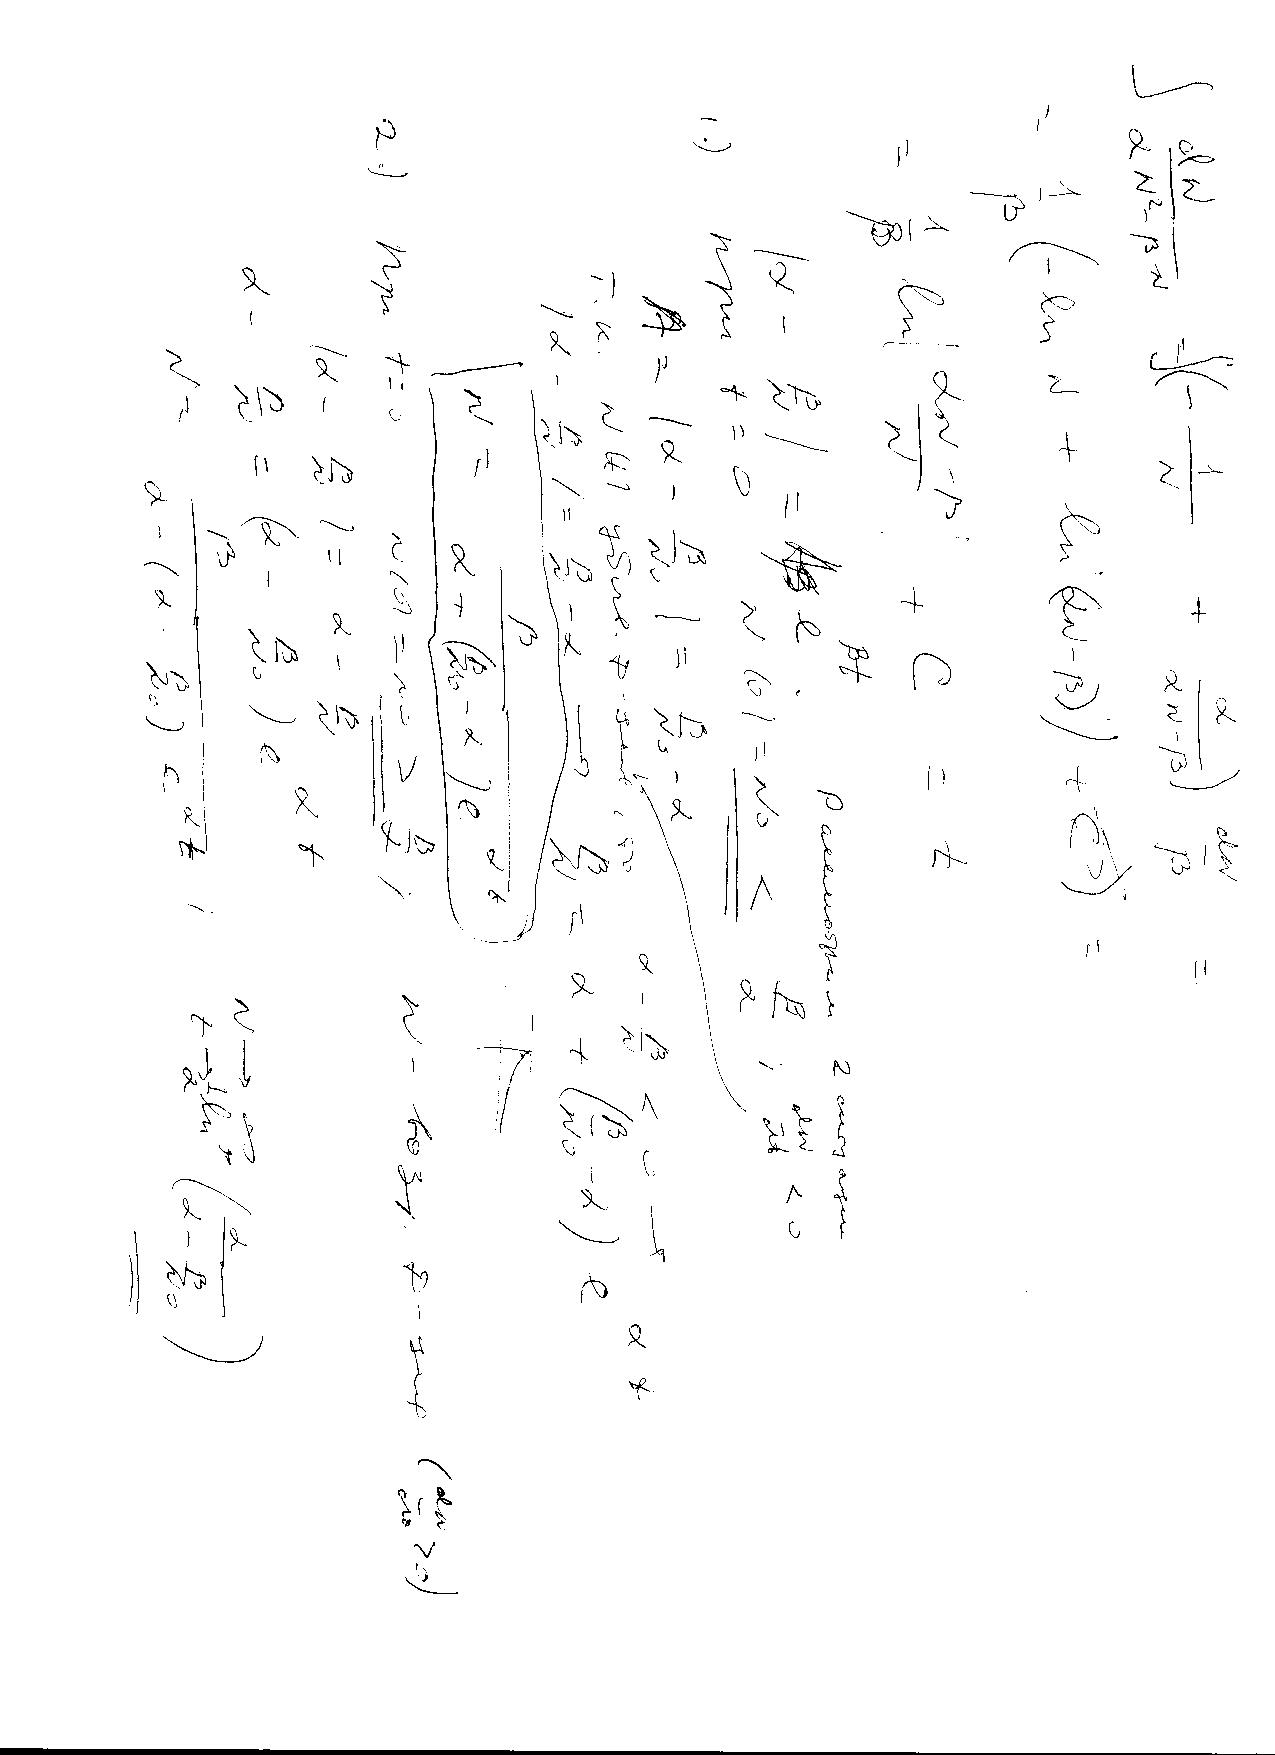 ∫ dN / (αN² - βN) = ∫(- 1/N + α/(αN-β)) dN/β =
= 1/β (- ln N + ln(αN-β) + C) =
= 1/β ln |(αN-β)/N| + C = t
Рассмотрим 2 ситуации
|α - β/N| = A e^βt
1.) при t=0 N(0) = N₀ < β/α ; dN/dt < 0
A = |α - β/N₀| = β/N₀ - α
Т.к. N(t) α - β/N < 0 →
|α - β/N| = β/N - α → β/N = α + (β/N₀ - α) e^αt
N = β / (α + (β/N₀ - α) e^αt)
2.) при t=0 N(0) = N₀ > β/α ; N - возр. (dN/dt > 0)
|α - β/N| = α - β/N
α - β/N = (α - β/N₀) e^αt
N = β / (α - (α - β/N₀) e^αt) ; N → ∞
t → 1/α ln (α / (α - β/N₀))